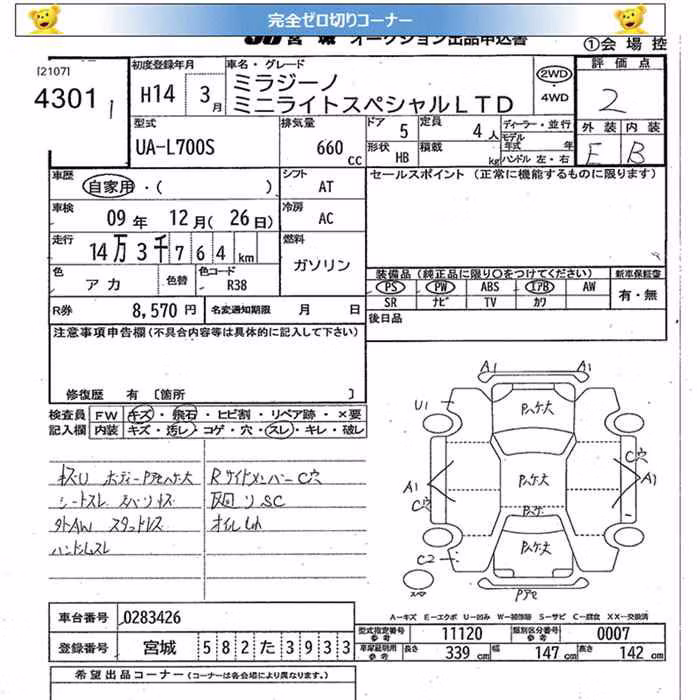 完全ゼロ切りコーナー
JU 宮城 オークション出品申込書
①会場控
[2107]
4301 1
初度登録年月
H14 3月
車名・グレード
ミラジーノ
ミニライトスペシャルLTD
2WD
4WD
評価点
2
外装 内装
E B
型式
UA-L700S
排気量
660 cc
ドア 5
定員 4人
形状 HB
積載 kg
ディーラー・並行
モデル年式 年
ハンドル 左・右
車歴
自家用・( )
シフト
AT
セールスポイント (正常に機能するものに限ります)
車検
09年 12月(26日)
冷房
AC
走行
14万3千764km
燃料
ガソリン
色
アカ
色替
色コード
R38
装備品(純正品に限り○をつけてください)
新車保証書
PS PW ABS エアB AW
SR ナビ TV カワ
有・無
R券 8,570円
名変通知期限 月 日
後日品
注意事項申告欄(不具合内容等は具体的に記入して下さい)
修復歴 有 〔箇所 〕
検査員記入欄
FW キズ・飛石・ヒビ割・リペア跡・×要
内装 キズ・汚レ・コゲ・穴・スレ・キレ・破レ
キズU ボディーPアセケ大
Rサイドメンバー C穴
シートスレ
下回りSC
外AW スタッドレス
オイルしみ
ハンドルスレ
A1 A1
U1
Pハケ大
C穴
A1
C穴
Pハケ大
A1
Pハケ
C2
Pハケ大
Pアセ
A-キズ E-エクボ U-凹み W-補修跡 S-サビ C-腐食 XX-交換済
車台番号 0283426
登録番号 宮城 582た3933
型式指定番号参考 11120
類別区分番号参考 0007
車庫証明用参考 長さ 339cm 幅 147cm 高さ 142cm
希望出品コーナー(コーナーは各会場により異なります。)